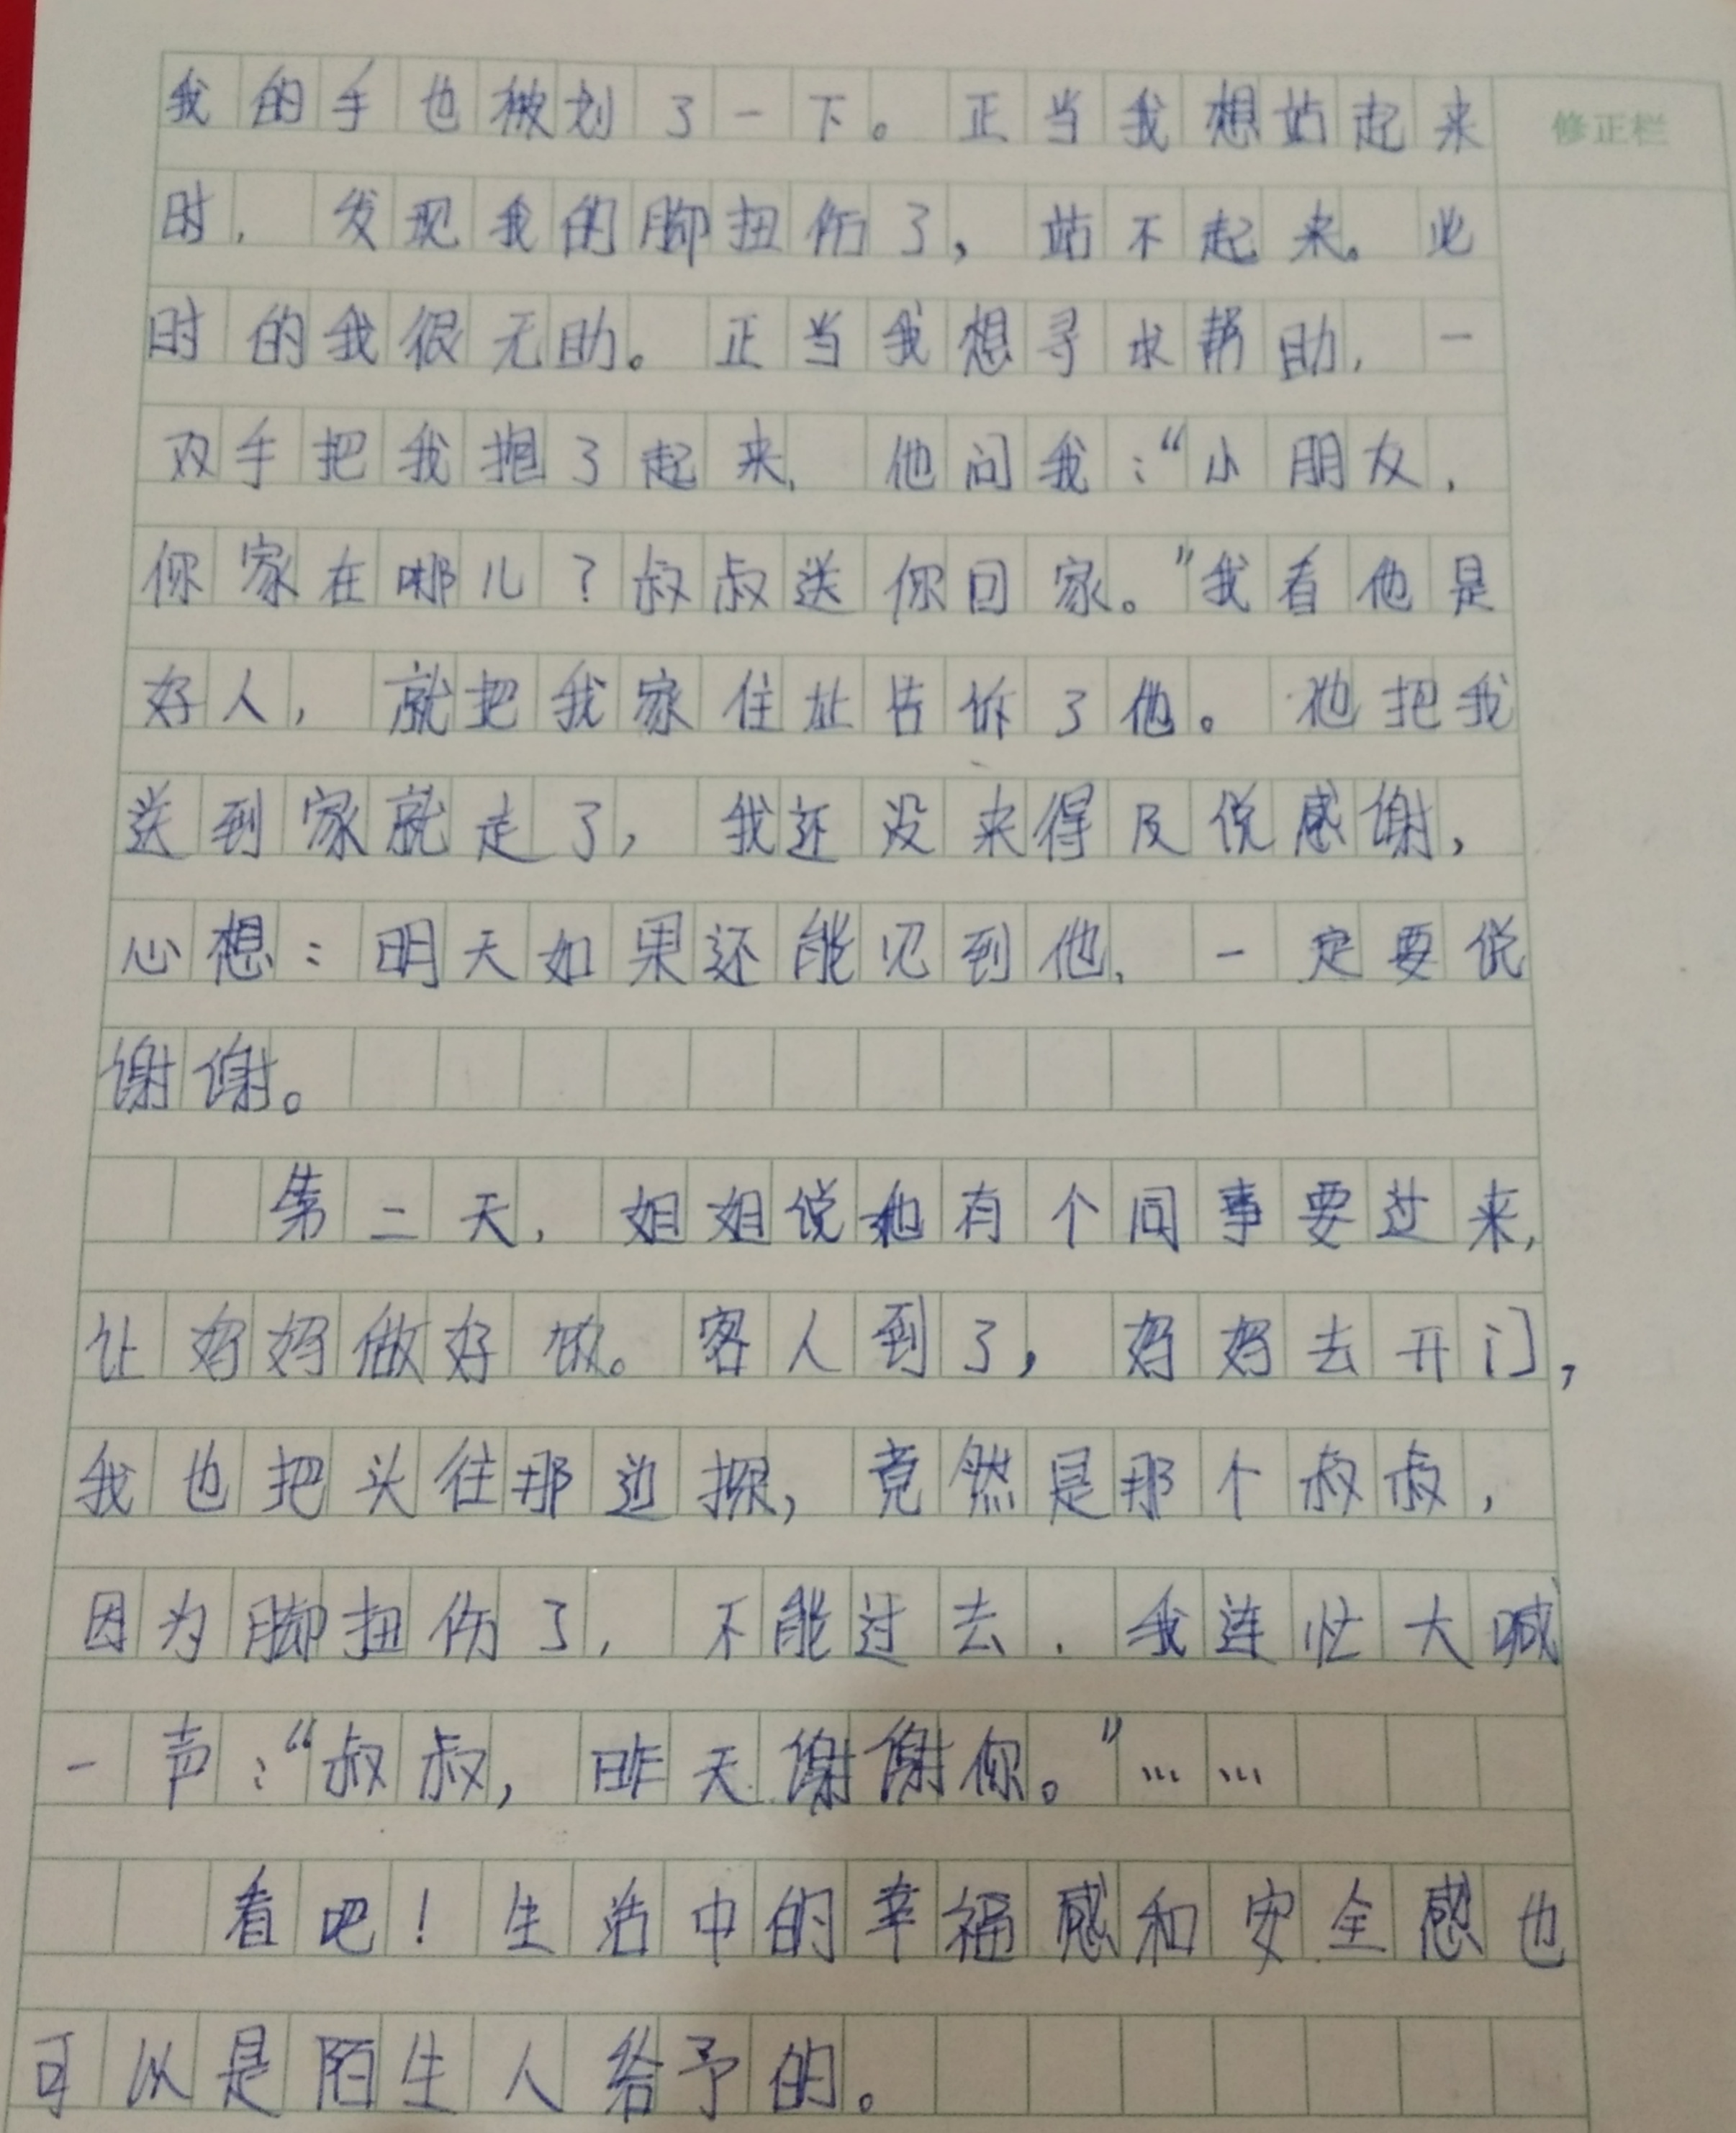 修正栏
我的手也被划了一下。正当我想站起来
时,发现我的脚扭伤了,站不起来。此
时的我很无助。正当我想寻求帮助,一
双手把我抱了起来,他问我:“小朋友,
你家在哪儿?叔叔送你回家。”我看他是
好人,就把我家住址告诉了他。他把我
送到家就走了,我还没来得及说感谢,
心想:明天如果还能见到他,一定要说
谢谢。
第二天,姐姐说她有个同事要过来,
让妈妈做好饭。客人到了,妈妈去开门,
我也把头往那边探,竟然是那个叔叔,
因为脚扭伤了,不能过去,我连忙大喊
一声:“叔叔,昨天谢谢你。”……
看吧!生活中的幸福感和安全感也
可以是陌生人给予的。